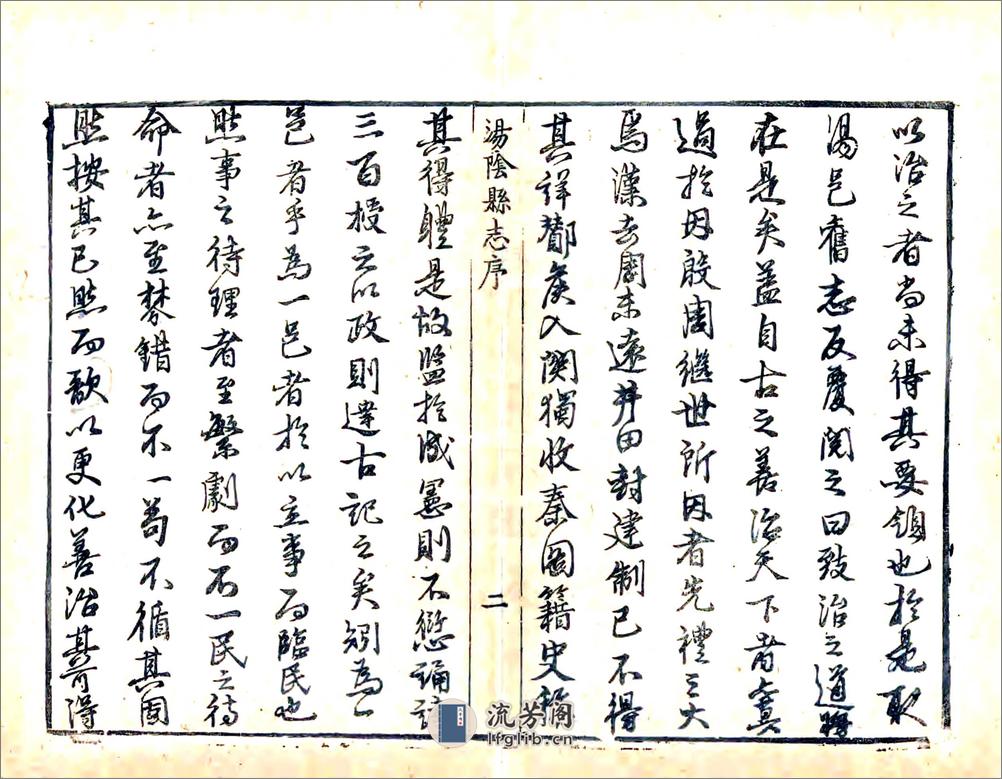 以治之者尚未得其要領也於是取
湯邑舊志反覆閱之曰致治之道將
在是矣蓋自古之善治天下者莫
過於因殷周繼世所因者先禮之大
焉漢去周未遠井田封建制已不得
其詳酇侯入関獨收秦圖籍史稱
湯陰縣志序
二
其得體是故監於成憲則不愆誦詩
三百授之以政則達古記之矣矧為一
邑者乎為一邑者於以立事而臨民也
然事之待理者至繁劇而不一民之待
命者亦至棼錯而不一苟不循其固
然按其已然而欲以更化善治其可得
流芳閣
lfglib.cn